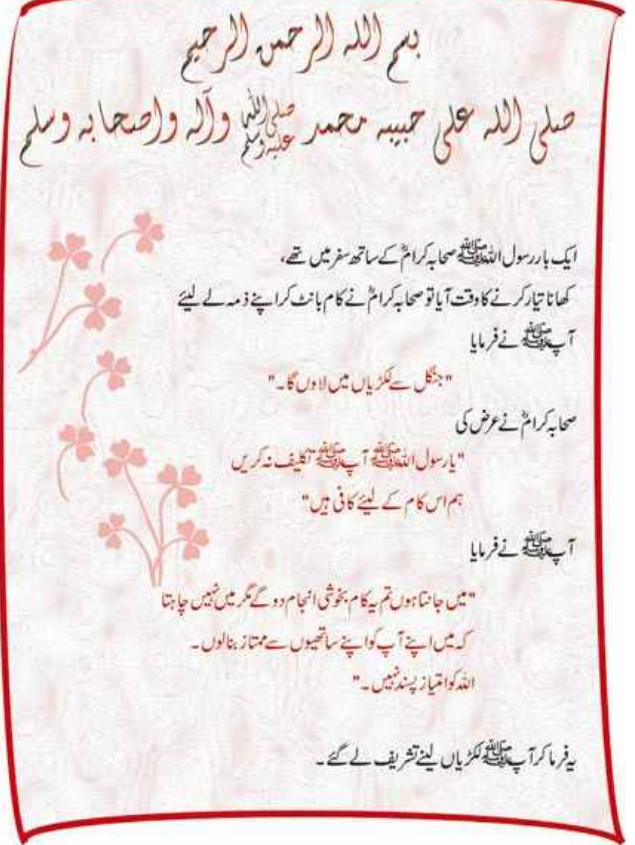 بسم الله الرحمن الرحيم
صلى الله على حبيبه محمد صلى الله عليه وسلم وآله واصحابه وسلم
ایک بار رسول اللہ ﷺ صحابہ کرامؓ کے ساتھ سفر میں تھے،
کھانا تیار کرنے کا وقت آیا تو صحابہ کرامؓ نے کام بانٹ کر اپنے ذمہ لے لیئے
آپ ﷺ نے فرمایا
"جنگل سے لکڑیاں میں لاوں گا۔"
صحابہ کرامؓ نے عرض کی
"یا رسول اللہ ﷺ آپ ﷺ تکلیف نہ کریں
ہم اس کام کے لیئے کافی ہیں"
آپ ﷺ نے فرمایا
"میں جانتا ہوں تم یہ کام بخوشی انجام دو گے مگر میں نہیں چاہتا
کہ میں اپنے آپ کو اپنے ساتھیوں سے ممتاز بنالوں۔
اللہ کو امتیاز پسند نہیں۔"
یہ فرما کر آپ ﷺ لکڑیاں لینے تشریف لے گئے۔